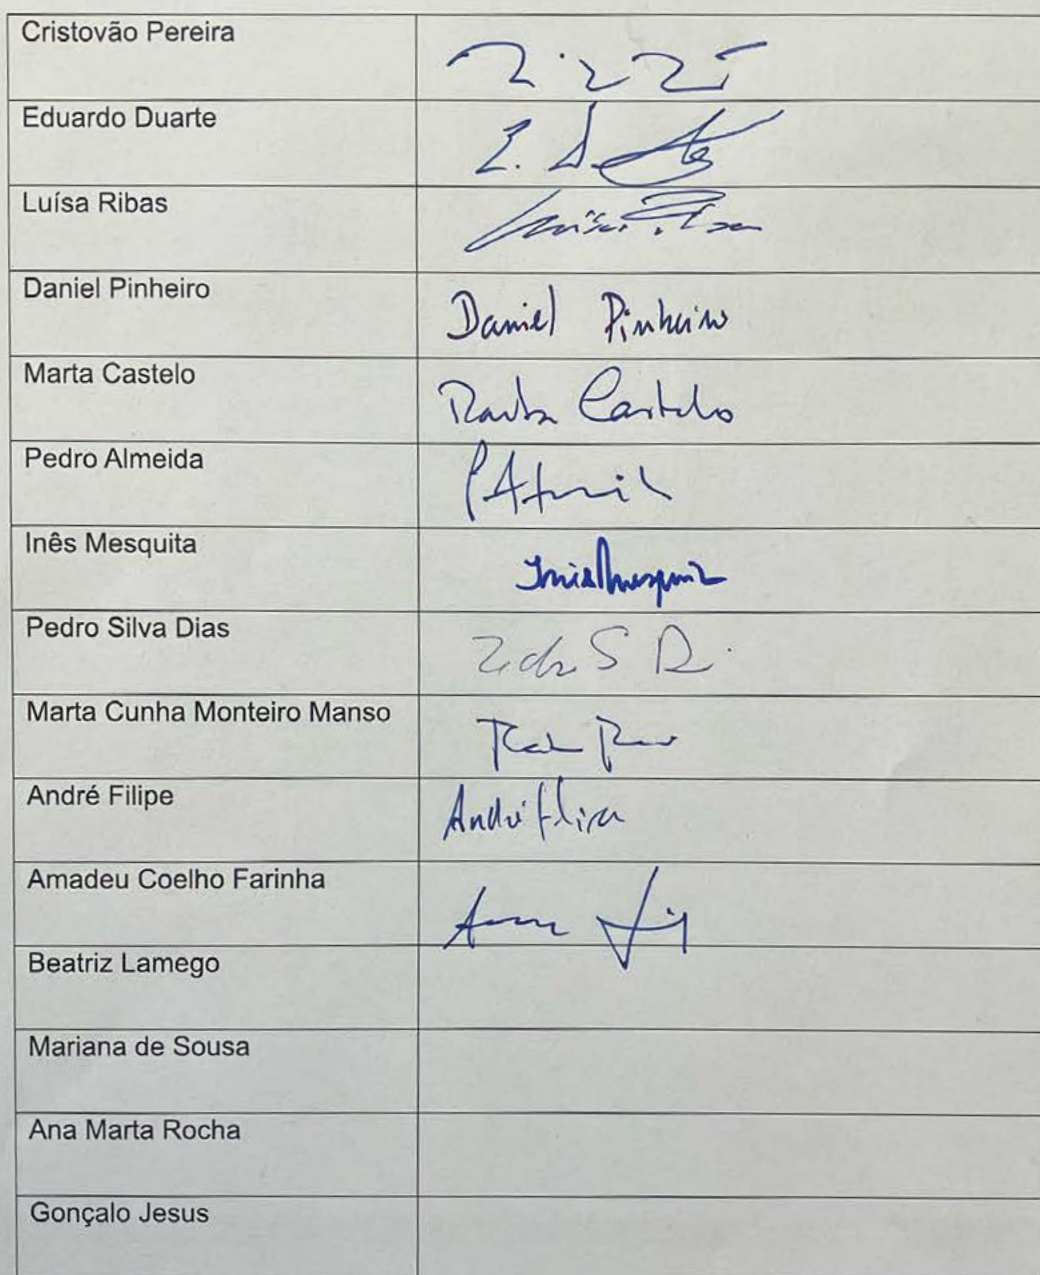 Cristovão Pereira
Eduardo Duarte
E. D
Luísa Ribas
Luísa Ribas
Daniel Pinheiro
Daniel Pinheiro
Marta Castelo
Marta Castelo
Pedro Almeida
Inês Mesquita
Inês Mesquita
Pedro Silva Dias
Marta Cunha Monteiro Manso
André Filipe
André Filipe
Amadeu Coelho Farinha
Beatriz Lamego
Mariana de Sousa
Ana Marta Rocha
Gonçalo Jesus